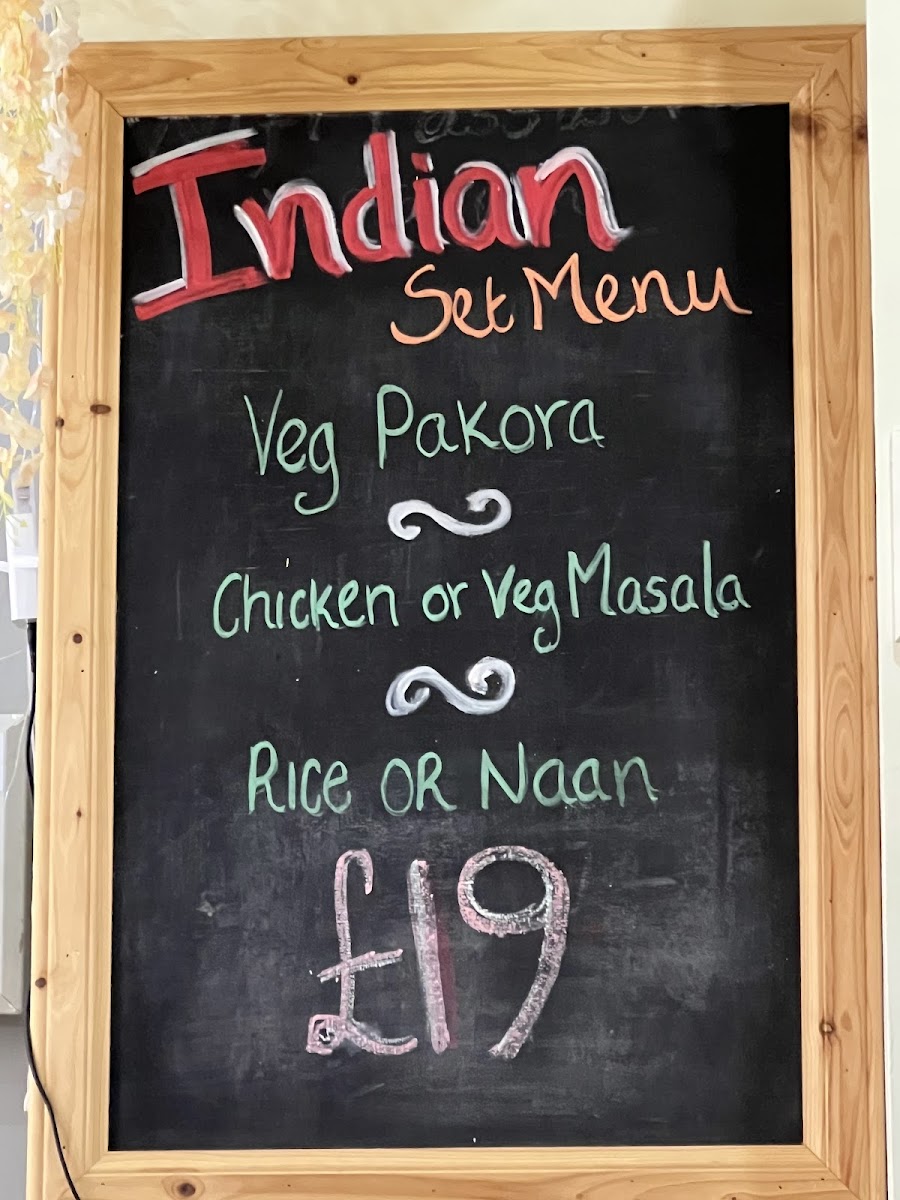 Indian
Set Menu
Veg Pakora
Chicken or Veg Masala
Rice OR Naan
£19